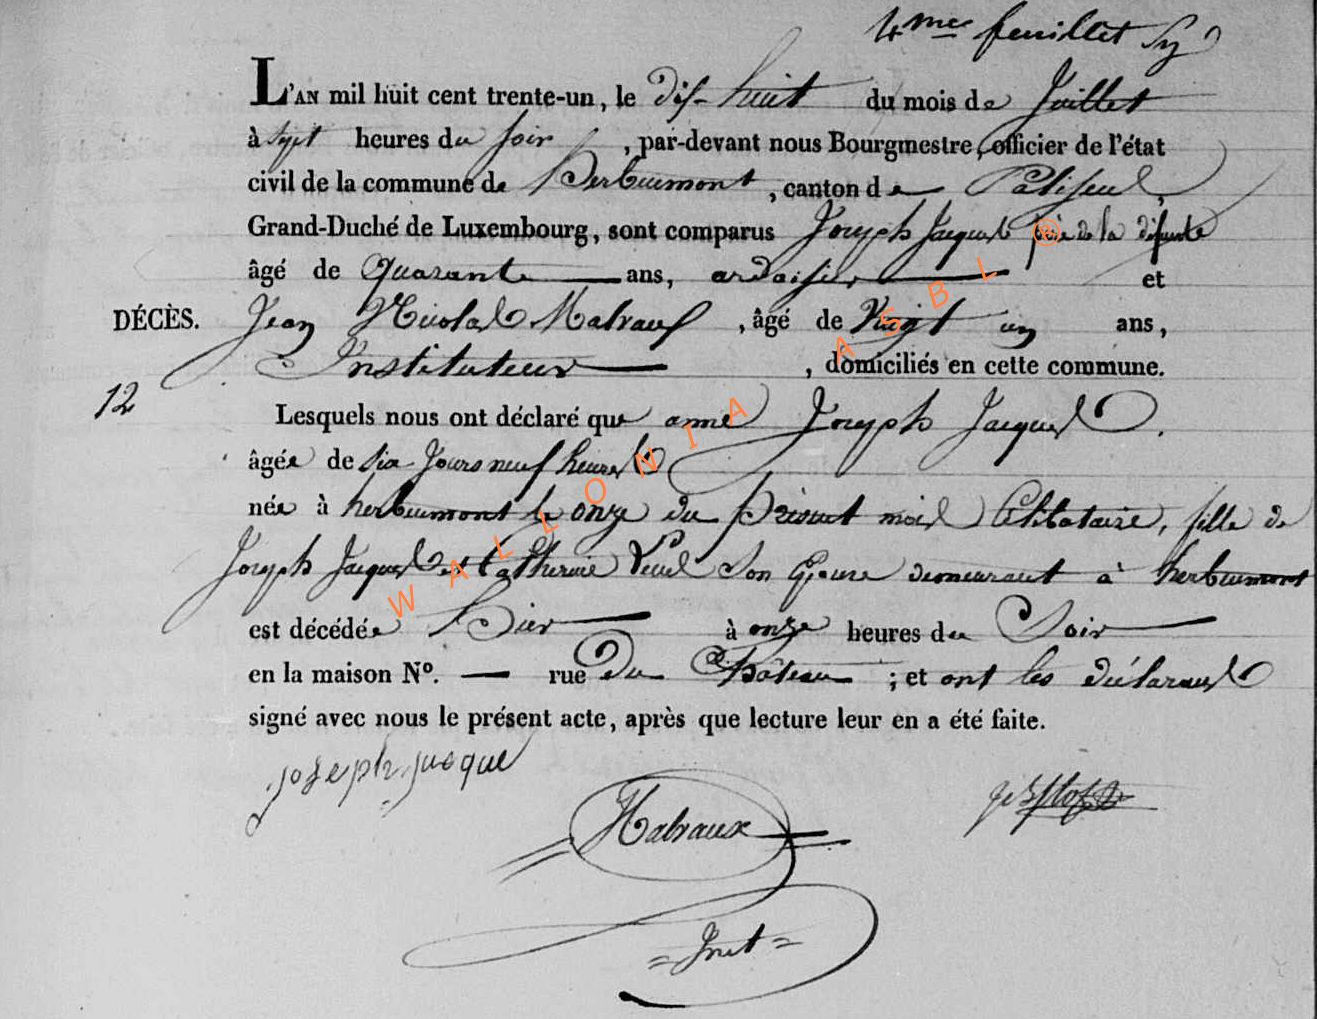 4me feuillet
L'AN mil huit cent trente-un, le dix-huit du mois de Juillet
à sept heures du soir, par-devant nous Bourgmestre, officier de l'état
civil de la commune de herbeumont, canton de Paliseul,
Grand-Duché de Luxembourg, sont comparus Joseph Jacques père de la défunte
âgé de Quarante ans, ardoisier et
DÉCÈS. Jean Nicolas Malvaux, âgé de Vingt un ans,
Instituteur, domiciliés en cette commune.
12
Lesquels nous ont déclaré que anne Joseph Jacques.
âgée de six Jours neuf heures
née à herbeumont le onze du présent mois Célibataire, fille de
Joseph Jacques et Catherine son Epouse demeurant à herbeumont
est décédée hier à onze heures du Soir
en la maison N°. — rue Du Château ; et ont les déclarants
signé avec nous le présent acte, après que lecture leur en a été faite.
joseph jacque
Malvaux
Inst
WALLONIA ASBL ®